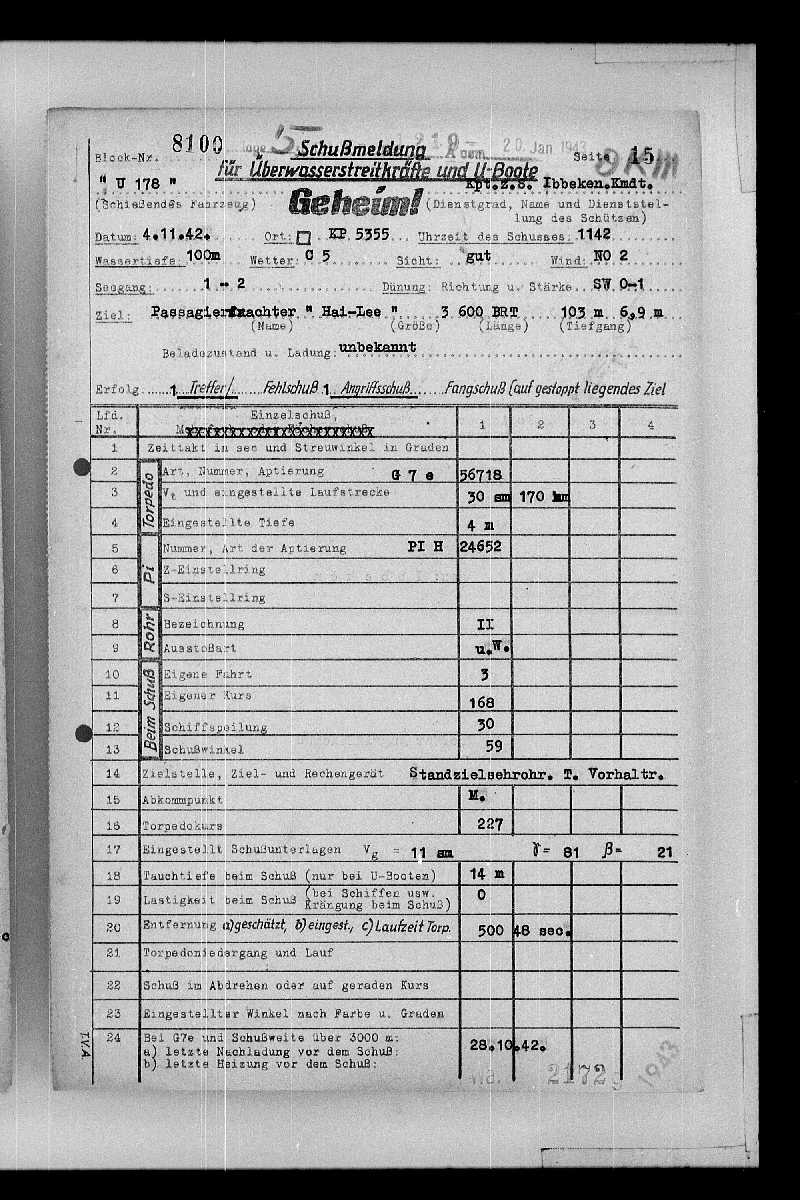 8100
5
Schußmeldung
20. Jan 1943
Block-Nr.
Seite 15
für Überwasserstreitkräfte und U-Boote
" U 178 "
Geheim!
Kpt.z.S. Ibbeken.Kmdt.
(Schießendes Fahrzeug)
(Dienstgrad, Name und Dienststel-
lung des Schützen)
Datum: 4.11.42. Ort: □ KP 5355 Uhrzeit des Schusses: 1142
Wassertiefe: 100m Wetter: C 5 Sicht: gut Wind: NO 2
Seegang: 1 - 2 Dünung: Richtung u. Stärke SW 0-1
Ziel: Passagierfrachter " Hai-Lee " 3 600 BRT 103 m 6,9 m
(Name) (Größe) (Länge) (Tiefgang)
Beladezustand u. Ladung: unbekannt
Erfolg 1 Treffer/ Fehlschuß 1 Angriffsschuß Fangschuß (auf gestoppt liegendes Ziel
Lfd. Nr. Einzelschuß, 1 2 3 4
1 Zeittakt in sec und Streuwinkel in Graden
Torpedo
2 Art, Nummer, Aptierung G 7 e 56718
3 Vt und eingestellte Laufstrecke 30 sm 170 hm
4 Eingestellte Tiefe 4 m
Pi
5 Nummer, Art der Aptierung PI H 24652
6 Z-Einstellring
7 S-Einstellring
Rohr
8 Bezeichnung II
9 Ausstoßart u.W.
Beim Schuß
10 Eigene Fahrt 3
11 Eigener Kurs 168
12 Schiffspeilung 30
13 Schußwinkel 59
14 Zielstelle, Ziel- und Rechengerät Standzielsehrohr. T. Vorhaltr.
15 Abkommpunkt M.
16 Torpedokurs 227
17 Eingestellt Schußunterlagen Vg = 11 sm γ= 81 β= 21
18 Tauchtiefe beim Schuß (nur bei U-Booten) 14 m
19 Lastigkeit beim Schuß (bei Schiffen usw. Krängung beim Schuß) 0
20 Entfernung a) geschätzt, b) eingest., c) Laufzeit Torp. 500 48 sec.
21 Torpedoniedergang und Lauf
22 Schuß im Abdrehen oder auf geraden Kurs
23 Eingestellter Winkel nach Farbe u. Graden
24 Bei G7e und Schußweite über 3000 m:
a) letzte Nachladung vor dem Schuß: 28.10.42.
b) letzte Heizung vor dem Schuß:
2172
1943